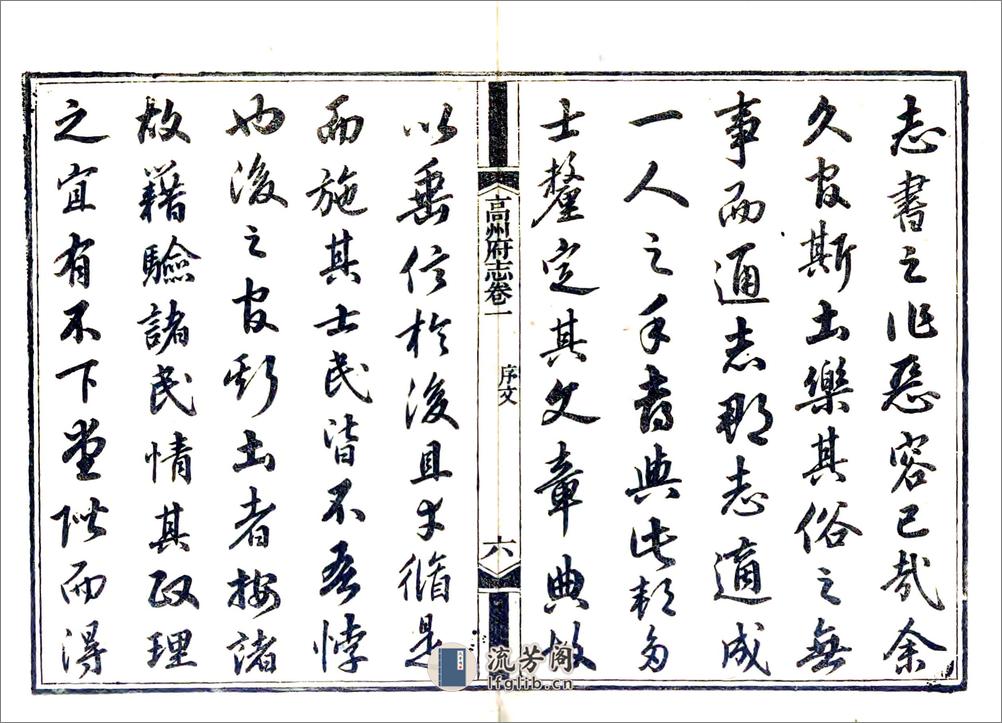 志書之作惡容已哉余
久官斯土樂其俗之無
事而通志郡志適成
一人之手喜與此邦多
士釐定其文章典故
高州府志卷一
序文
六
以垂信於後且幸循是
而施其士民皆不吾悖
也後之官斯土者按諸
故籍驗諸民情其政理
之宜有不下堂階而得
流芳阁
lfglib.cn